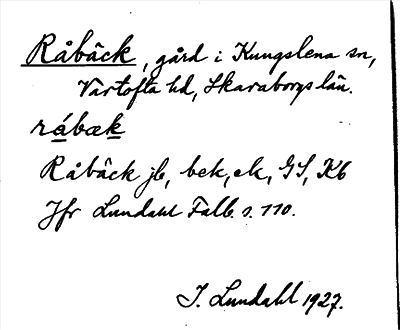 Råbäck, gård i Kungslena sn,
Vartofta hd, Skaraborgs län.
råbæk
Råbäck jb, bek, ek, GS, Kb
Jfr Lundahl Falb. s. 110.
I. Lundahl 1927.